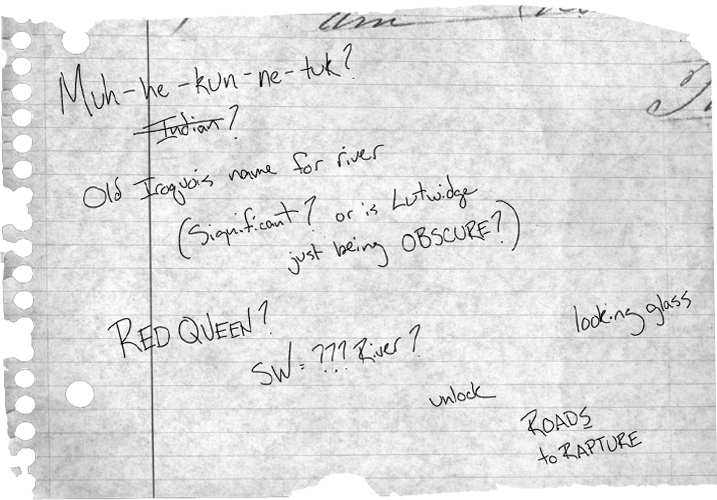 am
Muh-he-kun-ne-tuk?
Indian?
Old Iroquois name for river
(Significant? or is Lutwidge
just being OBSCURE?)
RED QUEEN?
looking glass
SW = ??? River?
unlock
ROADS
to RAPTURE